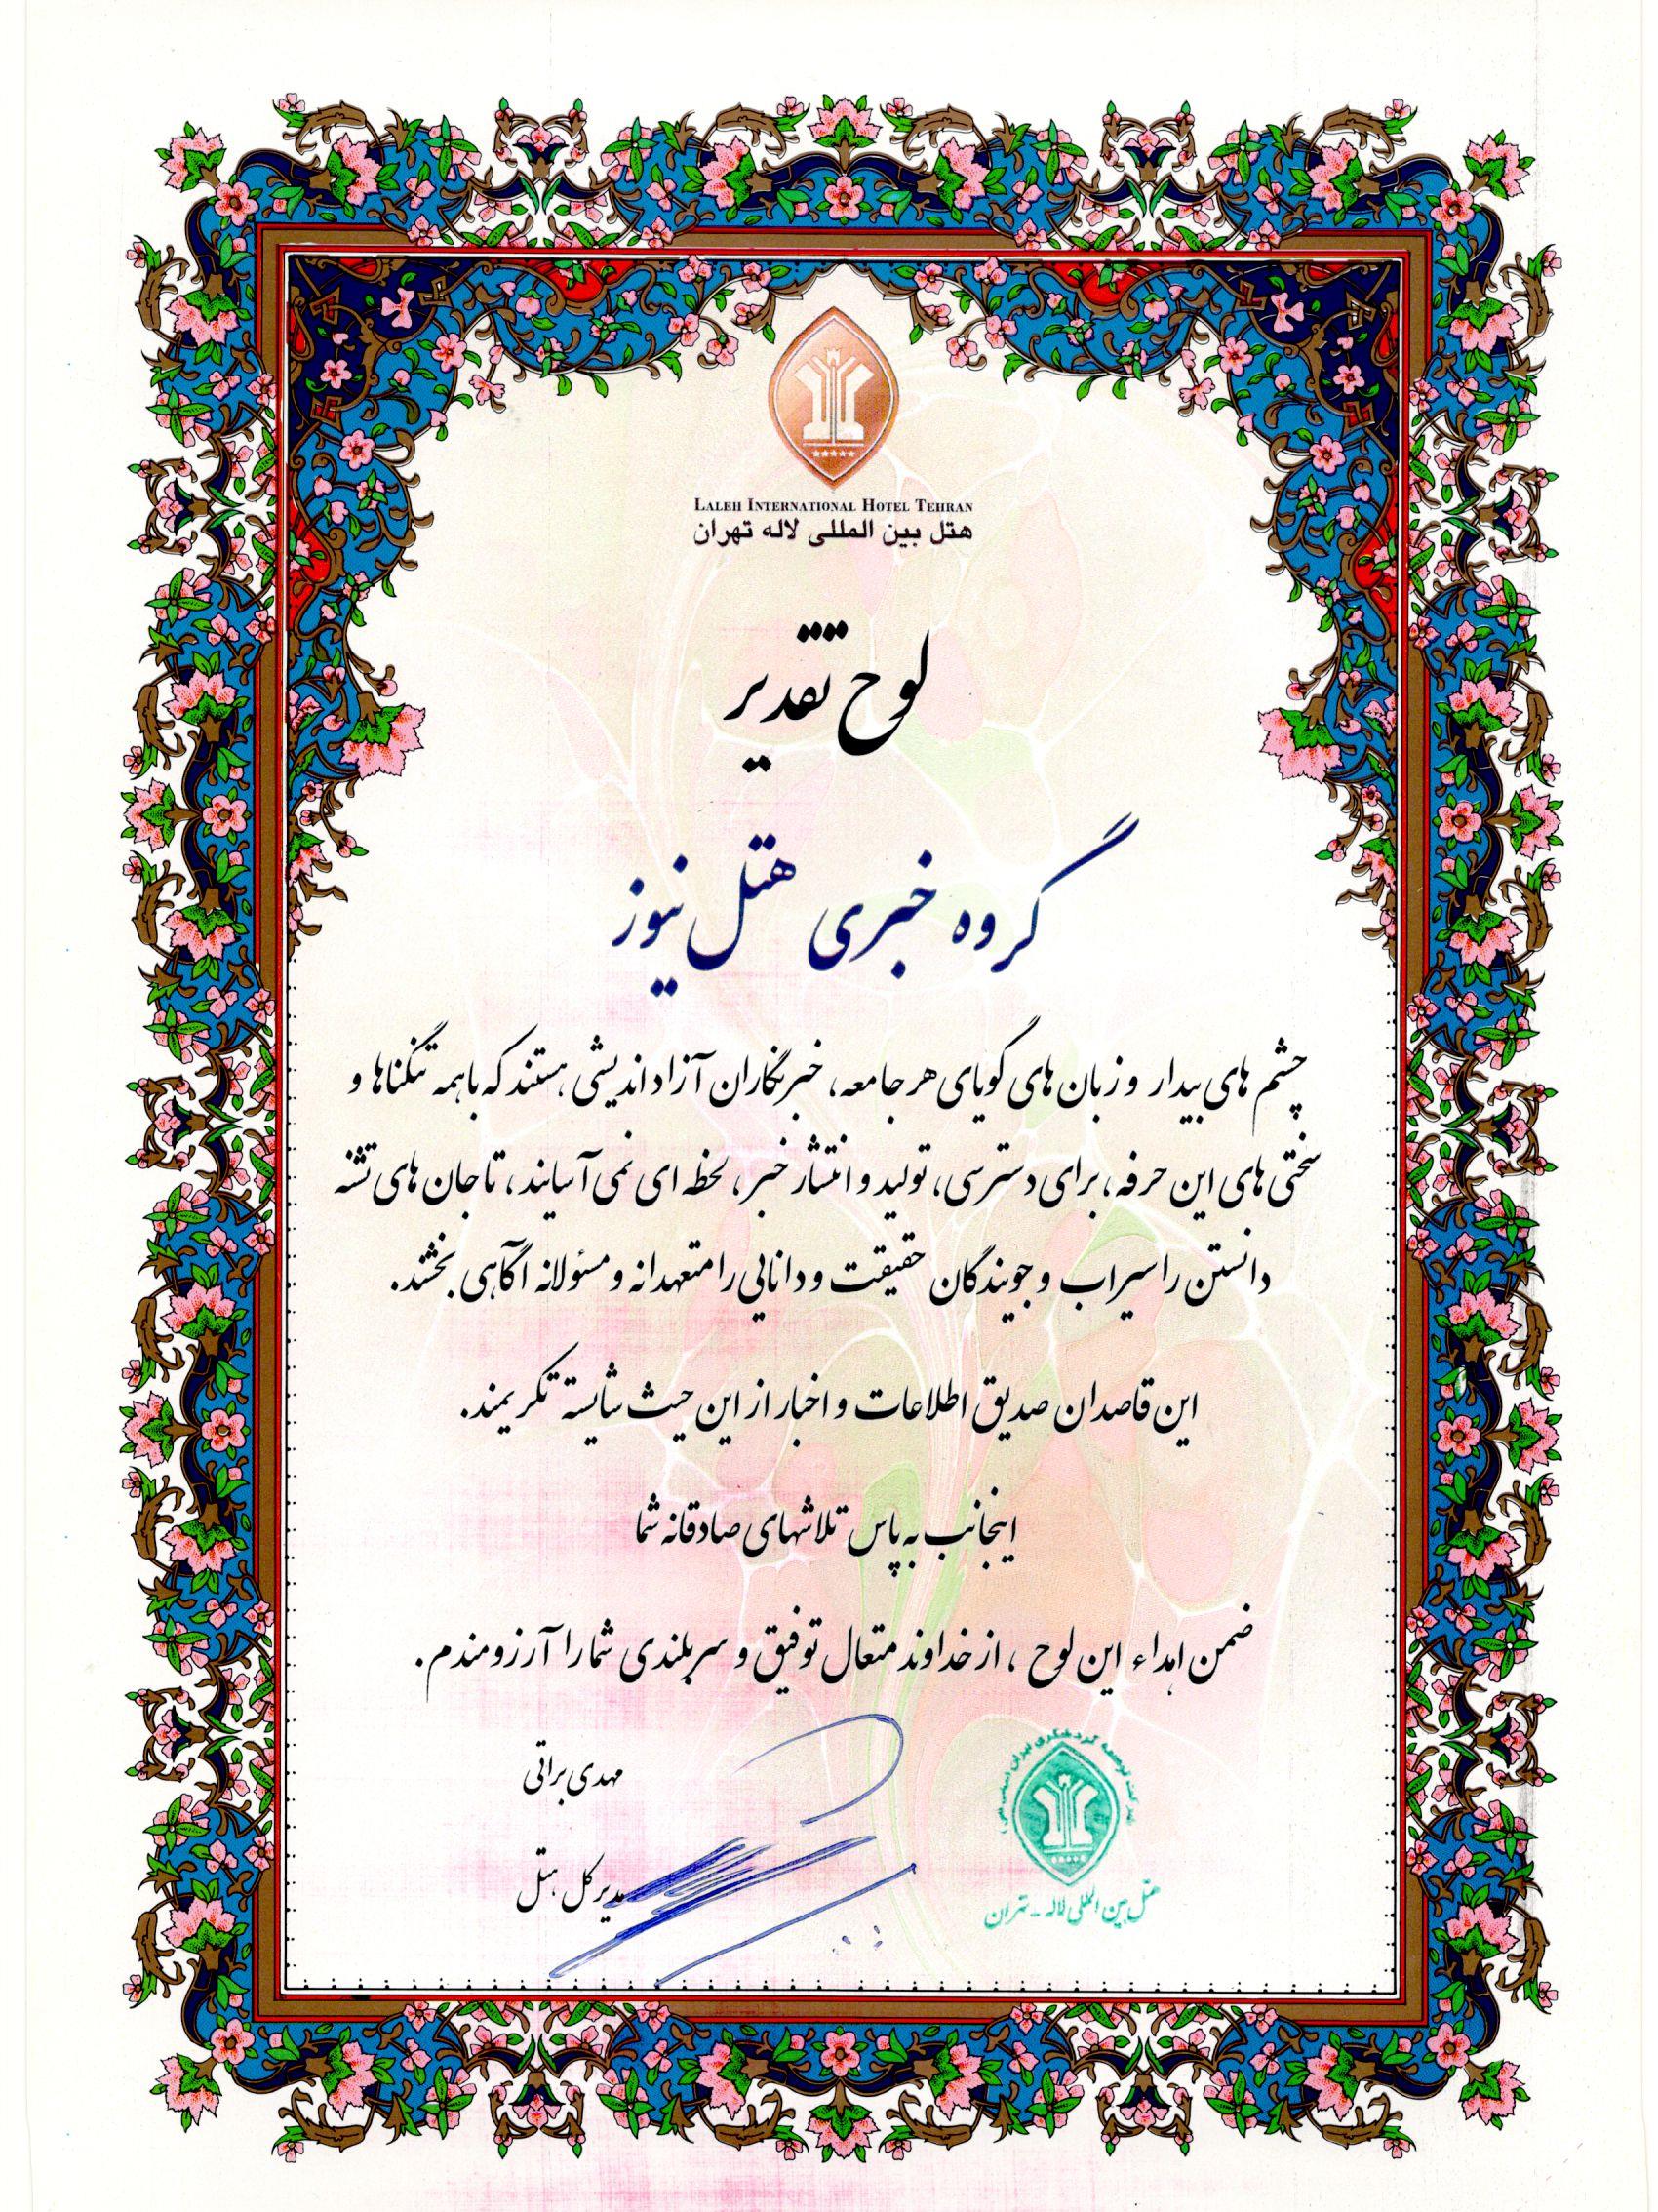 LALEH INTERNATIONAL HOTEL TEHRAN
هتل بین المللی لاله تهران
لوح تقدیر
گروه خبری هتل نیوز
چشم های بیدار و زبان های گویای هر جامعه، خبرنگاران آزاد اندیشی هستند که با همه تنگناها و
سختی های این حرفه، برای دسترسی، تولید و انتشار خبر، لحظه ای نمی آسایند، تا جان های تشنه
دانستن را سیراب و جویندگان حقیقت و دانایی را متعهدانه و مسئولانه آگاهی بخشند.
این قاصدان صدیق اطلاعات و اخبار از این حیث شایسته تکریمند.
اینجانب به پاس تلاشهای صادقانه شما
ضمن اهداء این لوح ، از خداوند متعال توفیق و سربلندی شما را آرزومندم.
مهدی براتی
مدیر کل هتل
شرکت توسعه گردشگری ایران
هتل بین المللی لاله - تهران